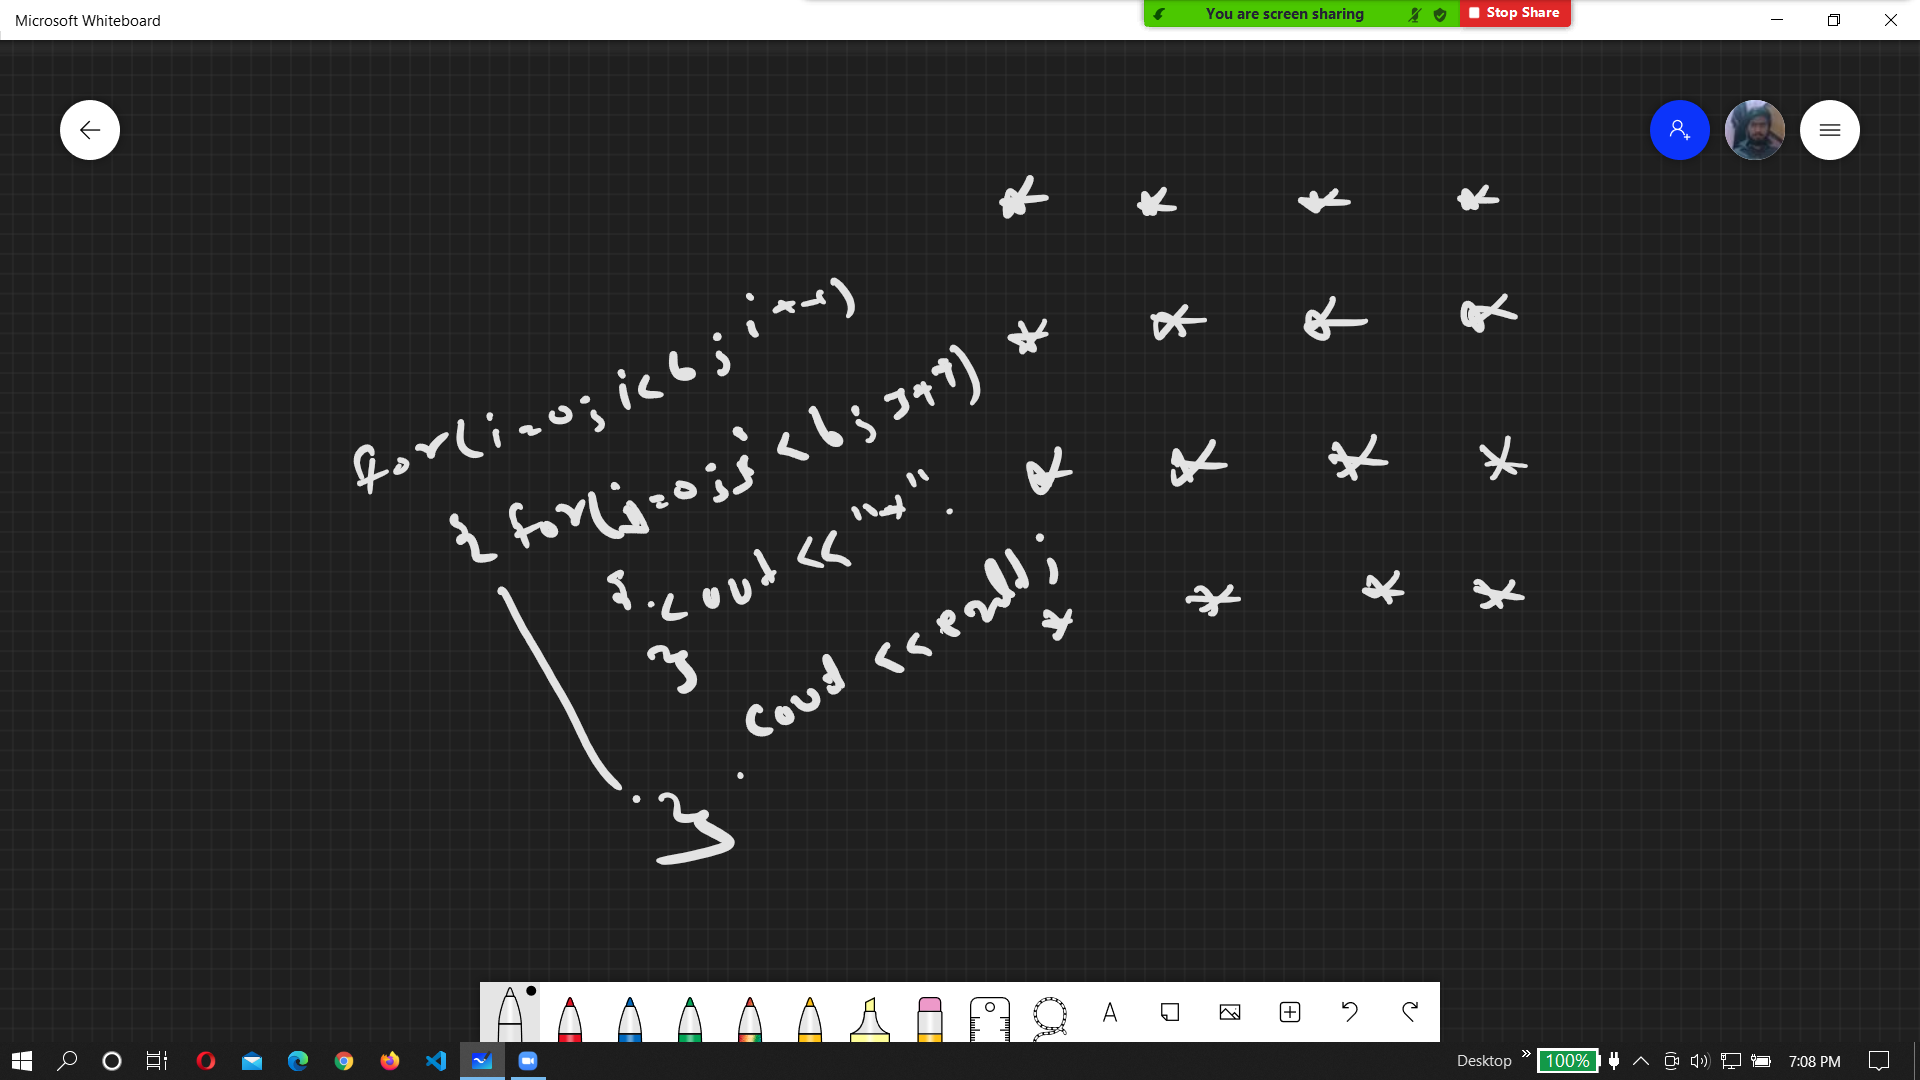 Microsoft Whiteboard
You are screen sharing
Stop Share
* * * *
for(i=0; i<6; i++)
* * * *
{ for(j=0; j<6; j++)
* * * *
{ cout << "*"
}
cout << endl;
* * * *
}
A
Desktop
100%
7:08 PM